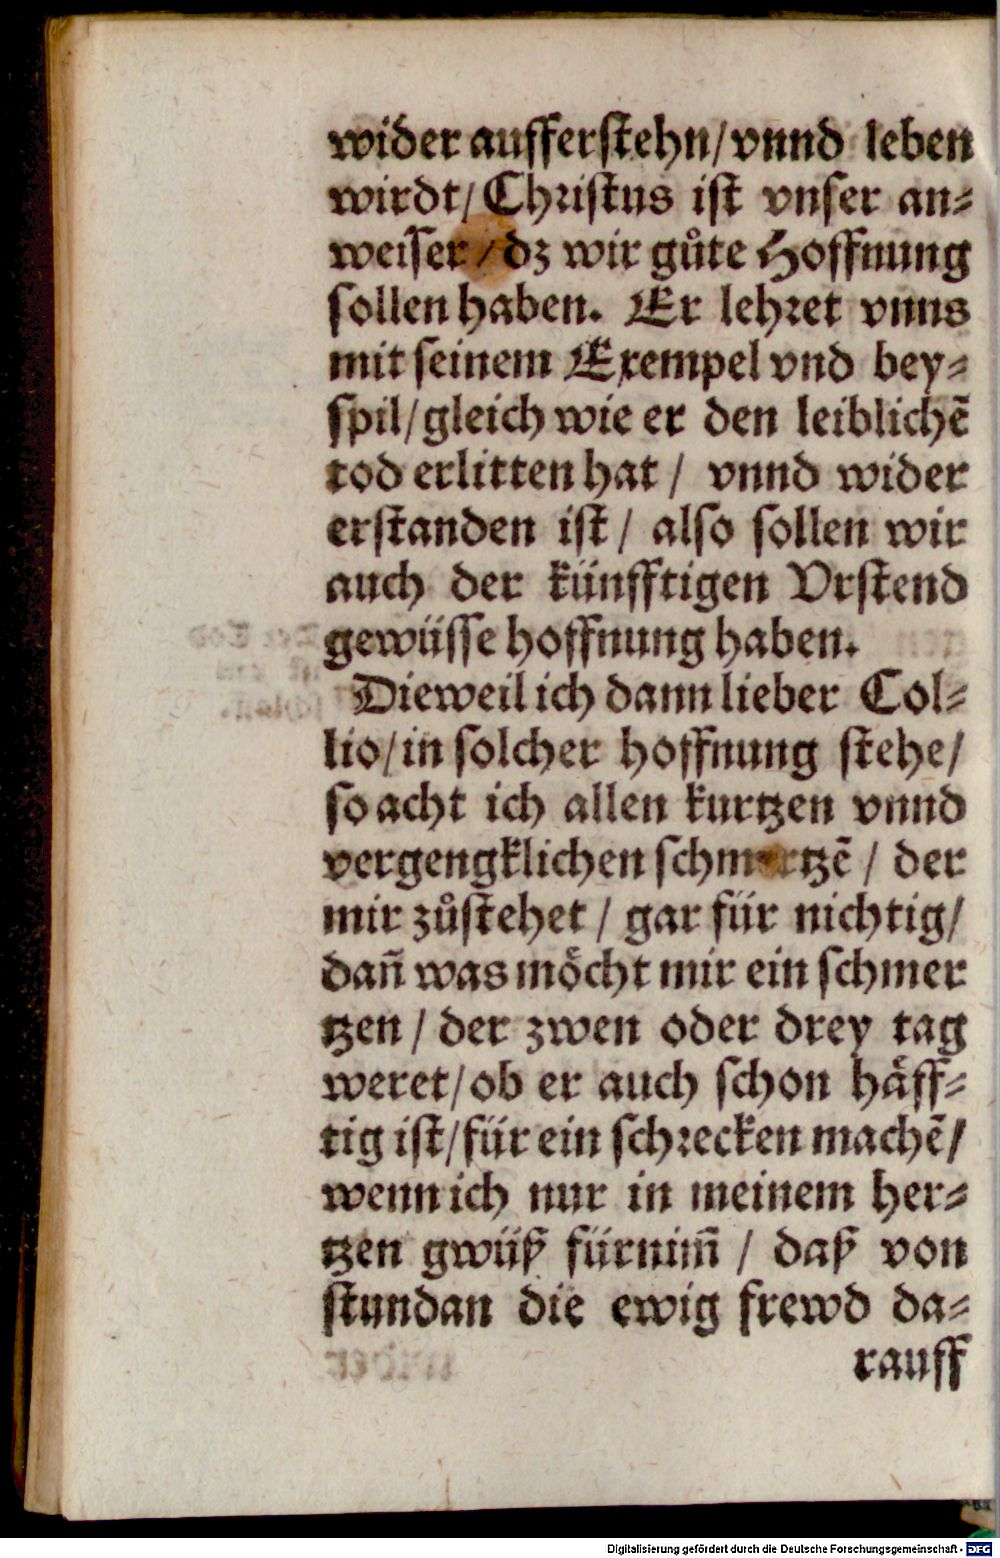 wider aufferſtehn/ vnnd leben
wirdt/ Chꝛiſtus iſt vnſer an⸗
weiſſer / dz wir gůte Hoffnung
ſollen haben. Er lehꝛet vnns
mit ſeinem Exempel vnd bey⸗
ſpil/ gleich wie er den leiblichẽ
tod erlitten hat / vnnd wider
erſtanden iſt / alſo ſollen wir
auch der künfftigen Vrſtend
gewüſſe hoffnung haben.
Dieweil ich dann lieber Col⸗
lio/ in ſolcher hoffnung ſtehe/
ſo acht ich allen kurtzen vnnd
vergengklichen ſchmertzẽ / der
mir zůſtehet / gar für nichtig/
dañ was möcht mir ein ſchmer
tzen / der zwen oder drey tag
weret/ ob er auch ſchon häff⸗
tig iſt/ für ein ſchꝛecken machẽ/
wenn ich nur in meinem her⸗
tzen gwüß fürnim̃ / daß von
ſtundan die ewig frewd da⸗
rauff
Digitalisierung gefördert durch die Deutsche Forschungsgemeinschaft - DFG